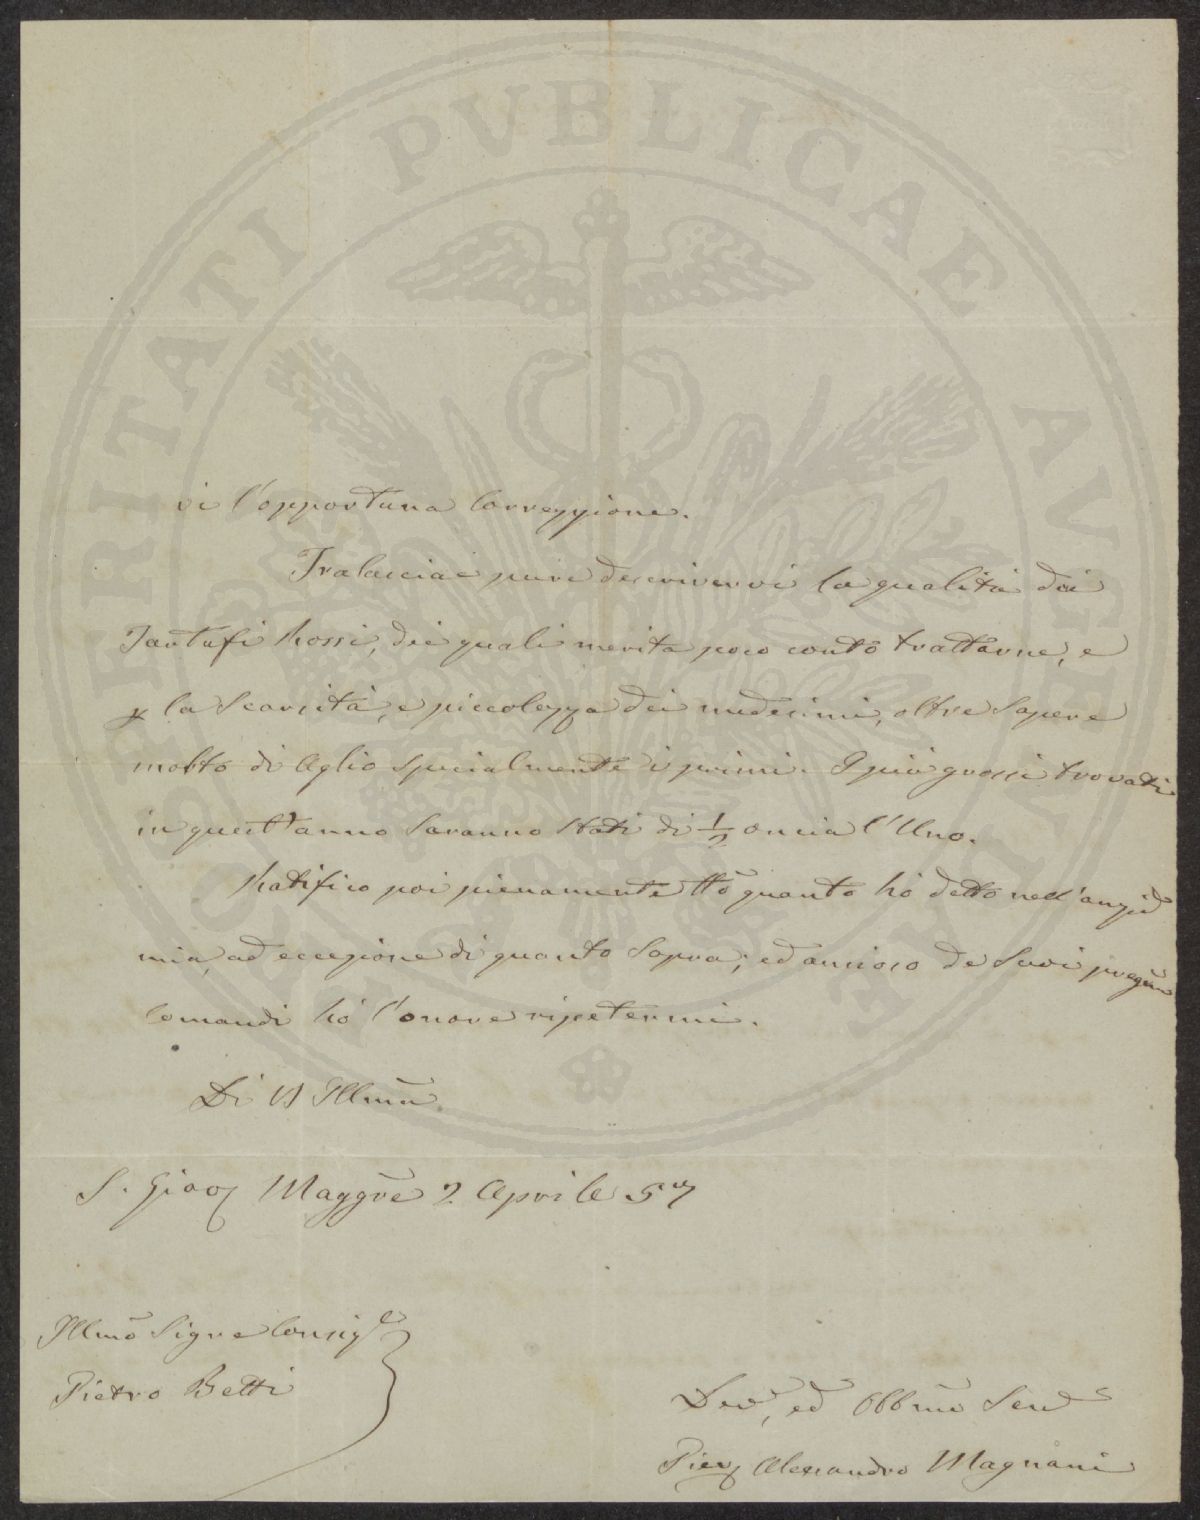 PROSPERITATI PUBLICAE AUGENDAE
vi l'opportuna Correzzione.
Tralasciai pure descrivervi la qualità dei
Tartufi Rossi, dei quali merita poco conto trattarne, e
p la Scarsità, e piccolezza dei medesimi, oltre Sapere
molto di Aglio specialmente i primi. I più grossi trovati
in quest'anno Saranno Stati di 1/2 oncia l'Uno.
Ratifico poi pienamente tto quanto hò detto nell'anzid
mia, ad eccezione di quanto Sopra; ed ansioso de Suoi preg
Comandi hò l'onore ripetermi.
Di VS Illma
S. Giov Maggre 2 Aprile 57
Illmo Sigre Consig
Pietro Betti
Dev, ed Obbmo Serv
Pier Alessandro Magnani